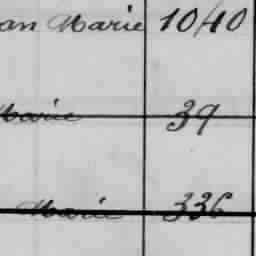 an Marie 1040
Marie 39
Marie 336